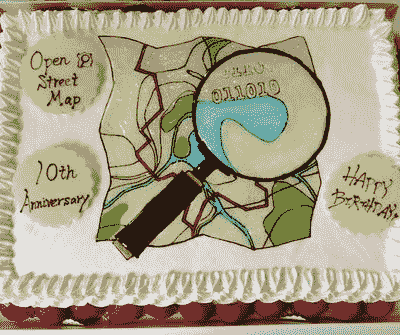 Open
Street
Map
10th
Anniversary
011010
HAPPY
BIRTHDAY